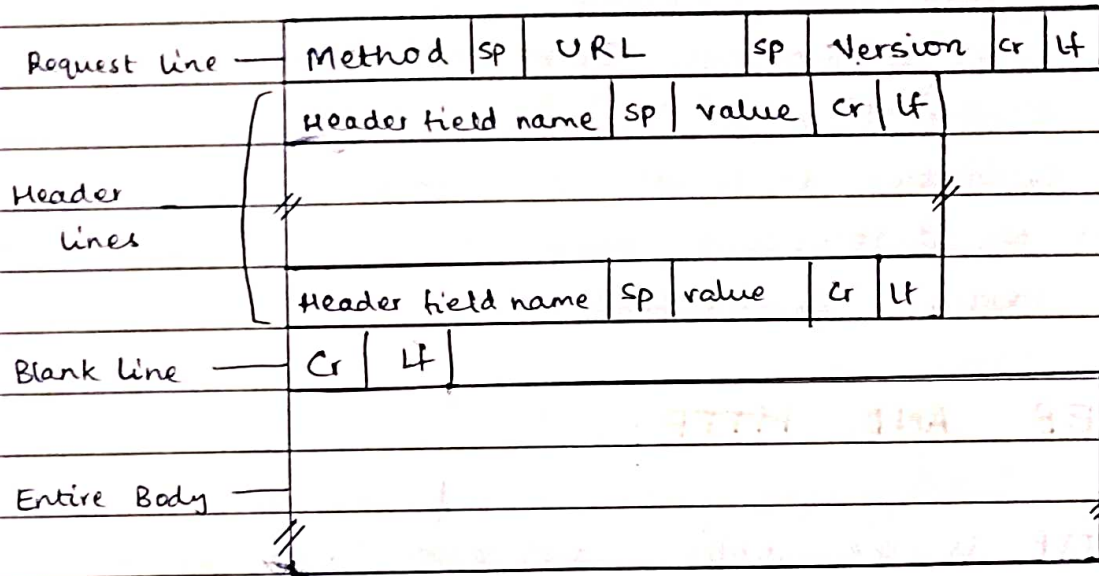 Request line Method sp URL sp Version cr lf
Header field name sp value cr lf
Header
lines
Header field name sp value cr lf
Blank line Cr Lf
Entire Body